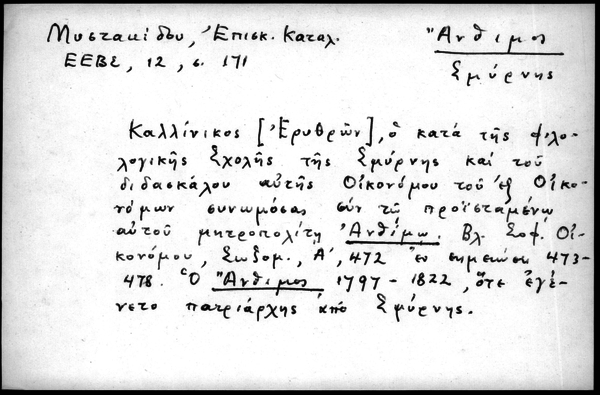 Μυστακίδου, Ἐπισκ. Καταλ.
ΕΕΒΣ, 12, σ. 171
Ἄνθιμος
Σμύρνης
Καλλίνικος [Ἐρυθρῶν], ὁ κατά τῆς φιλο-
λογικῆς Σχολῆς τῆς Σμύρνης καί τοῦ
διδασκάλου αὐτῆς Οἰκονόμου τοῦ ἐξ Οἰκο-
νόμων συνωμόσας σύν τῷ προϊσταμένῳ
αὐτοῦ μητροπολίτῃ Ἀνθίμῳ. Βλ. Σοφ. Οἰ-
κονόμου, Σωζομ., Α΄, 472 ἐν σημειώσει 473-
478. Ὁ Ἄνθιμος 1797 - 1822, ὅτε ἐγέ-
νετο πατριάρχης ἀπό Σμύρνης.